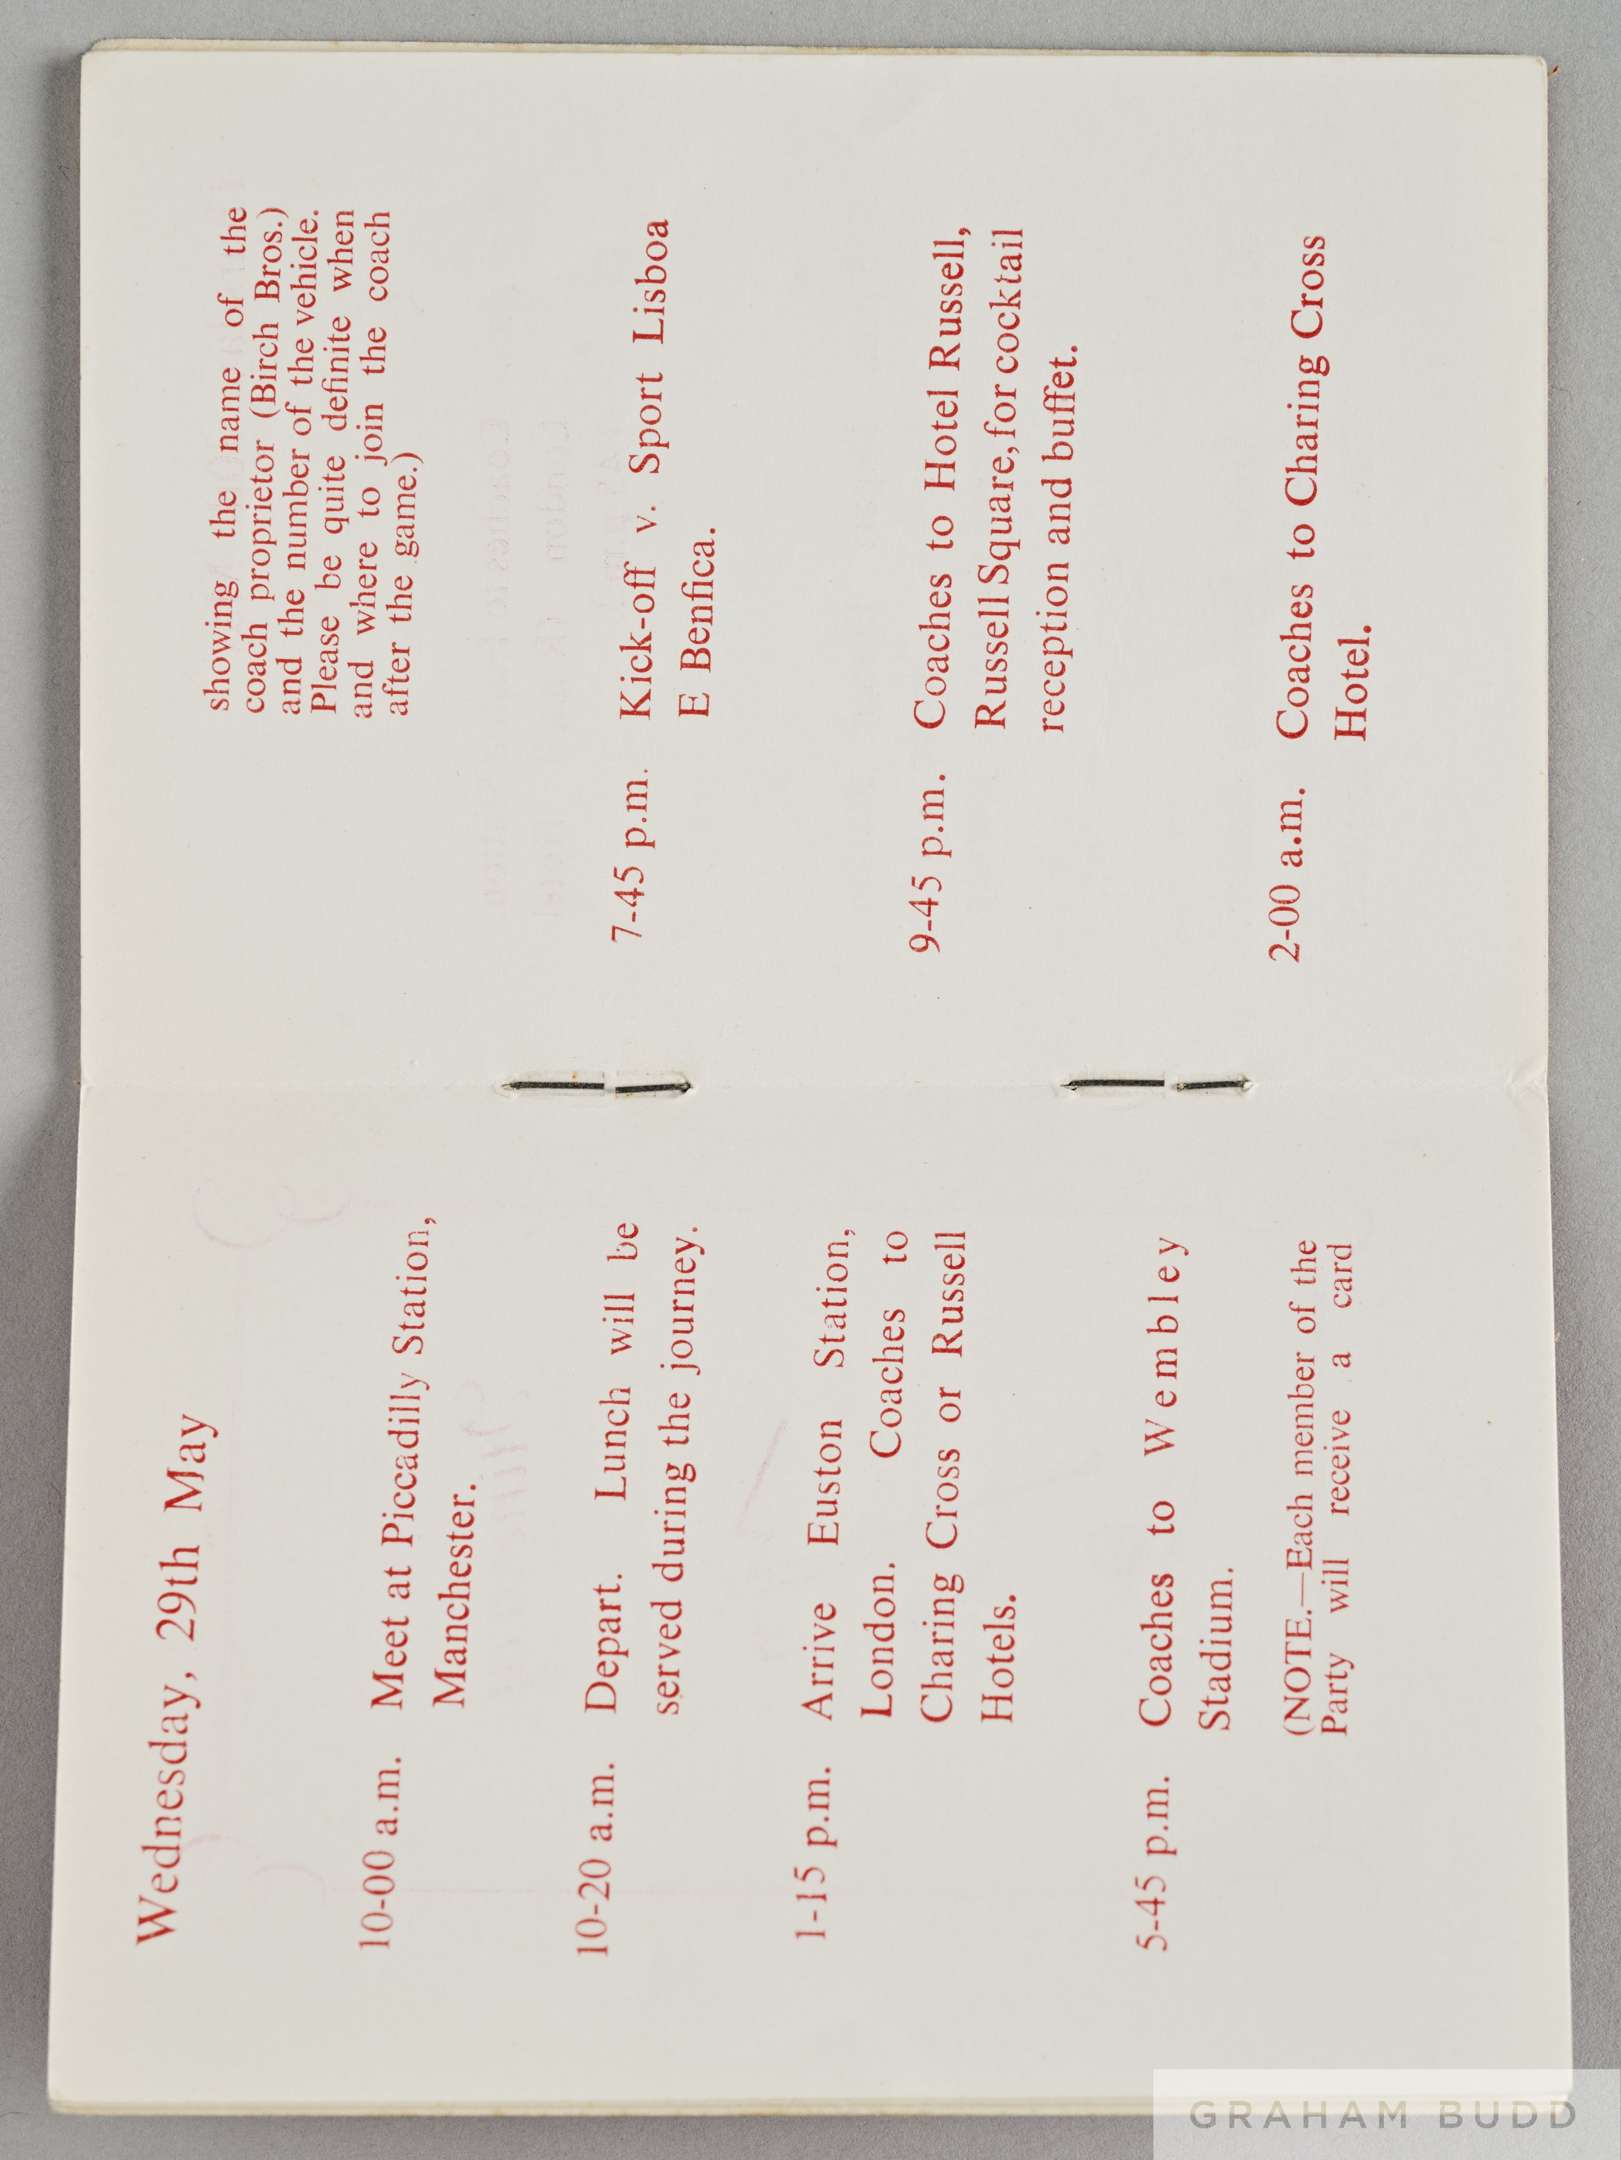 Wednesday, 29th May
10-00 a.m. Meet at Piccadilly Station,
Manchester.
10-20 a.m. Depart. Lunch will be
served during the journey.
1-15 p.m. Arrive Euston Station,
London. Coaches to
Charing Cross or Russell
Hotels.
5-45 p.m. Coaches to Wembley
Stadium.
(NOTE.—Each member of the
Party will receive a card
showing the name of the
coach proprietor (Birch Bros.)
and the number of the vehicle.
Please be quite definite when
and where to join the coach
after the game.)
7-45 p.m. Kick-off v. Sport Lisboa
E Benfica.
9-45 p.m. Coaches to Hotel Russell,
Russell Square, for cocktail
reception and buffet.
2-00 a.m. Coaches to Charing Cross
Hotel.
GRAHAM BUDD